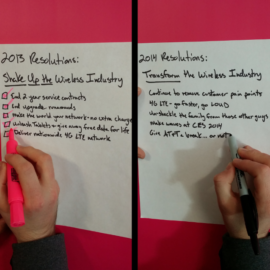 2013 Resolutions:
Shake Up the Wireless Industry
End 2 year service contracts
End upgrade
Make the world your network - no extra charge
Unleash Tablets + give away free data for life
Deliver nationwide 4G LTE network
2014 Resolutions:
Transform the Wireless Industry
Continue to remove customer pain points
4G LTE - go faster, go LOUD
Unshackle the family from those other guys
Make waves at CES 2014
Give AT+T a break... or not